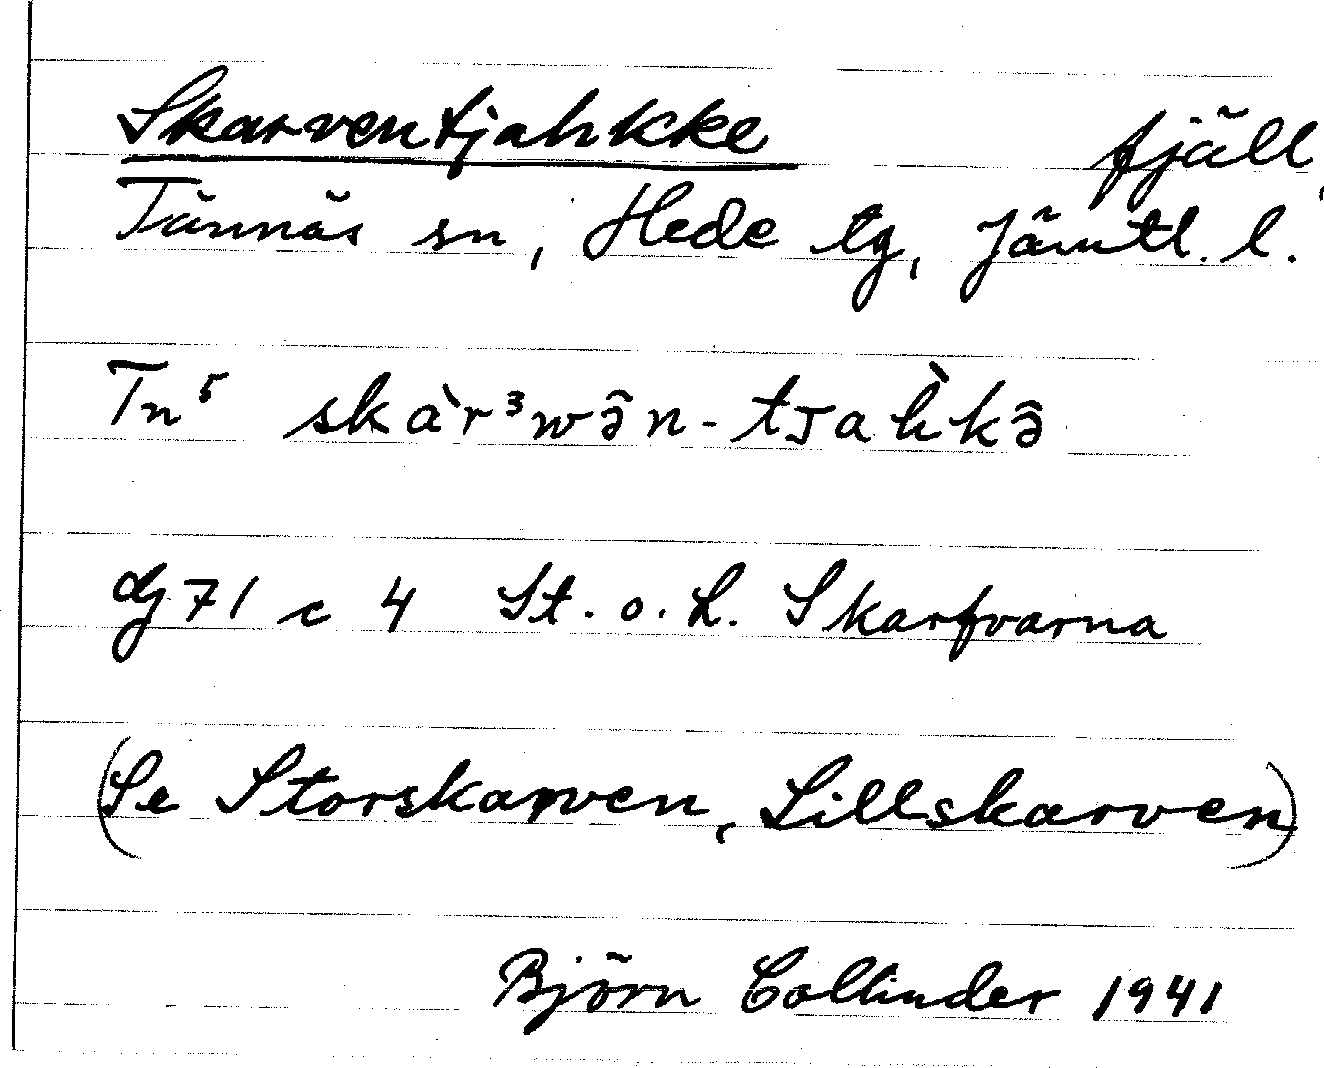 Skarventjahkke fjäll,
Tännäs sn, Hede tg, Jämtl. l.
Tn⁵ skàr³wə̂n-tsah̀kə̂
dg 71 c 4 St. o. L. Skarfvarna
(Se Storskarven, Lillskarven)
Björn Collinder 1941